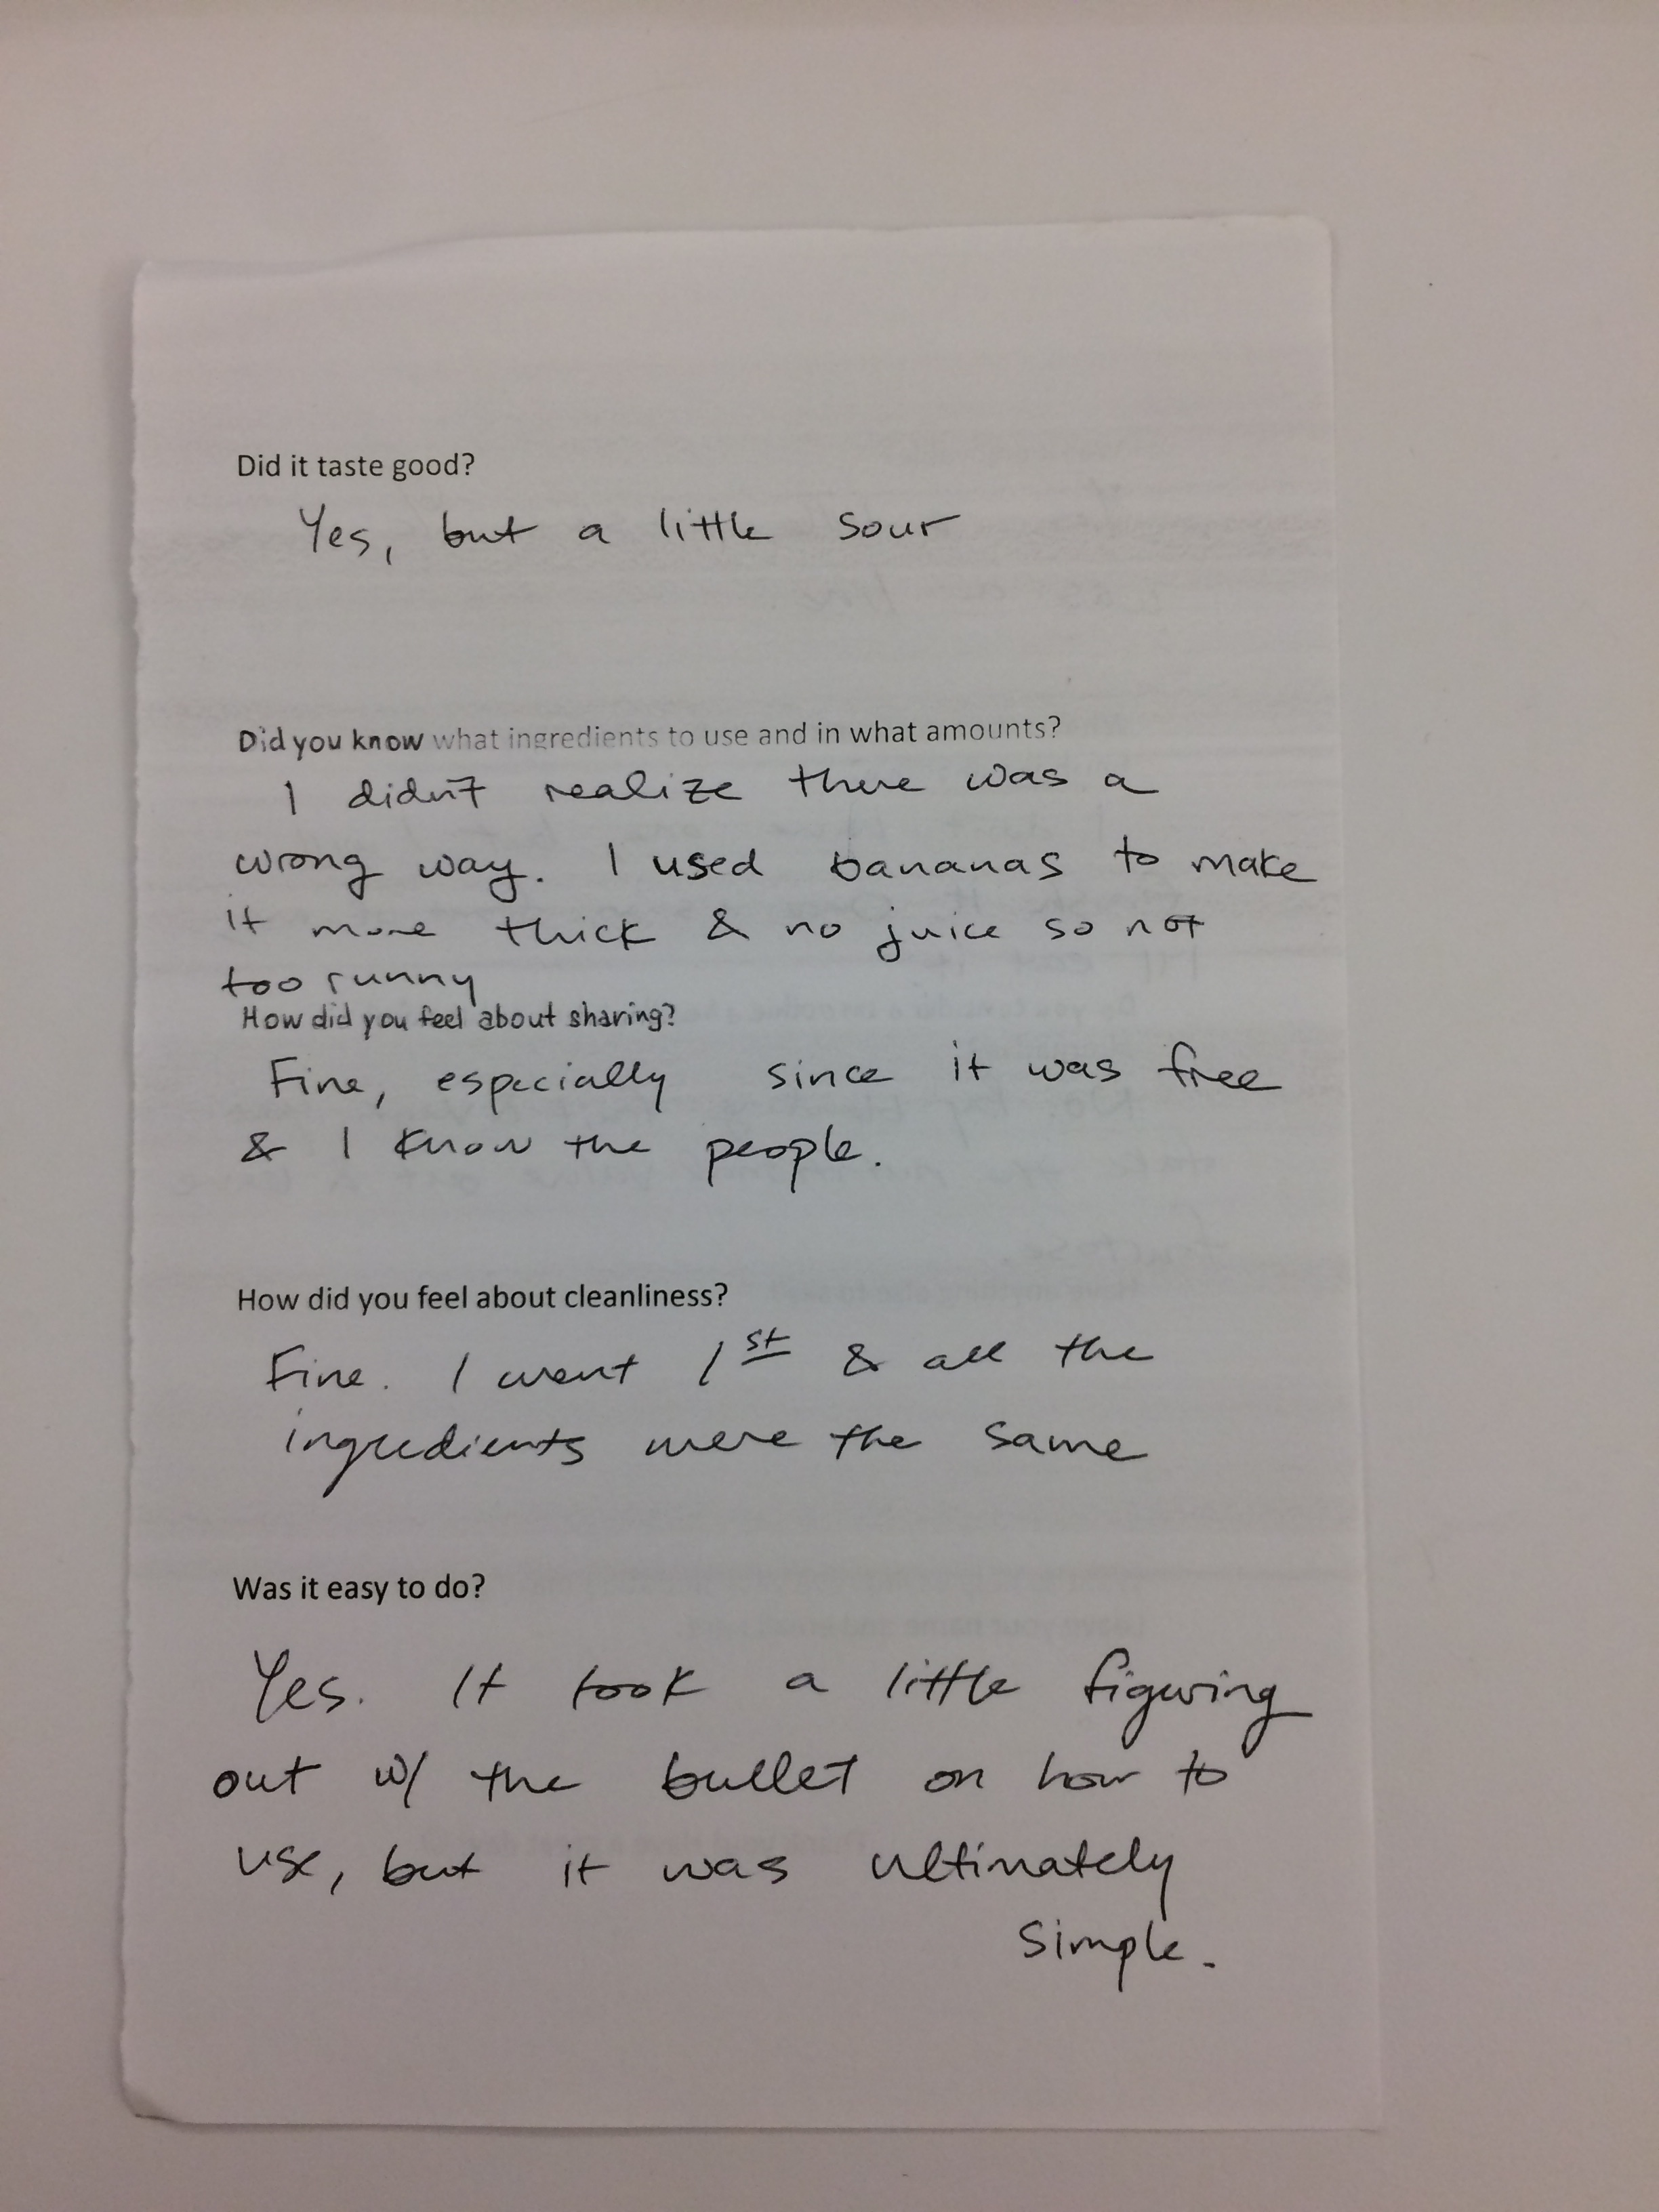 Did it taste good?
Yes, but a little sour
Did you know what ingredients to use and in what amounts?
I didn't realize there was a
wrong way. I used bananas to make
it more thick & no juice so not
too runny
How did you feel about sharing?
Fine, especially since it was free
& I know the people.
How did you feel about cleanliness?
Fine. I went 1st & all the
ingredients were the same
Was it easy to do?
Yes. It took a little figuring
out w/ the bullet on how to
use, but it was ultimately
simple.